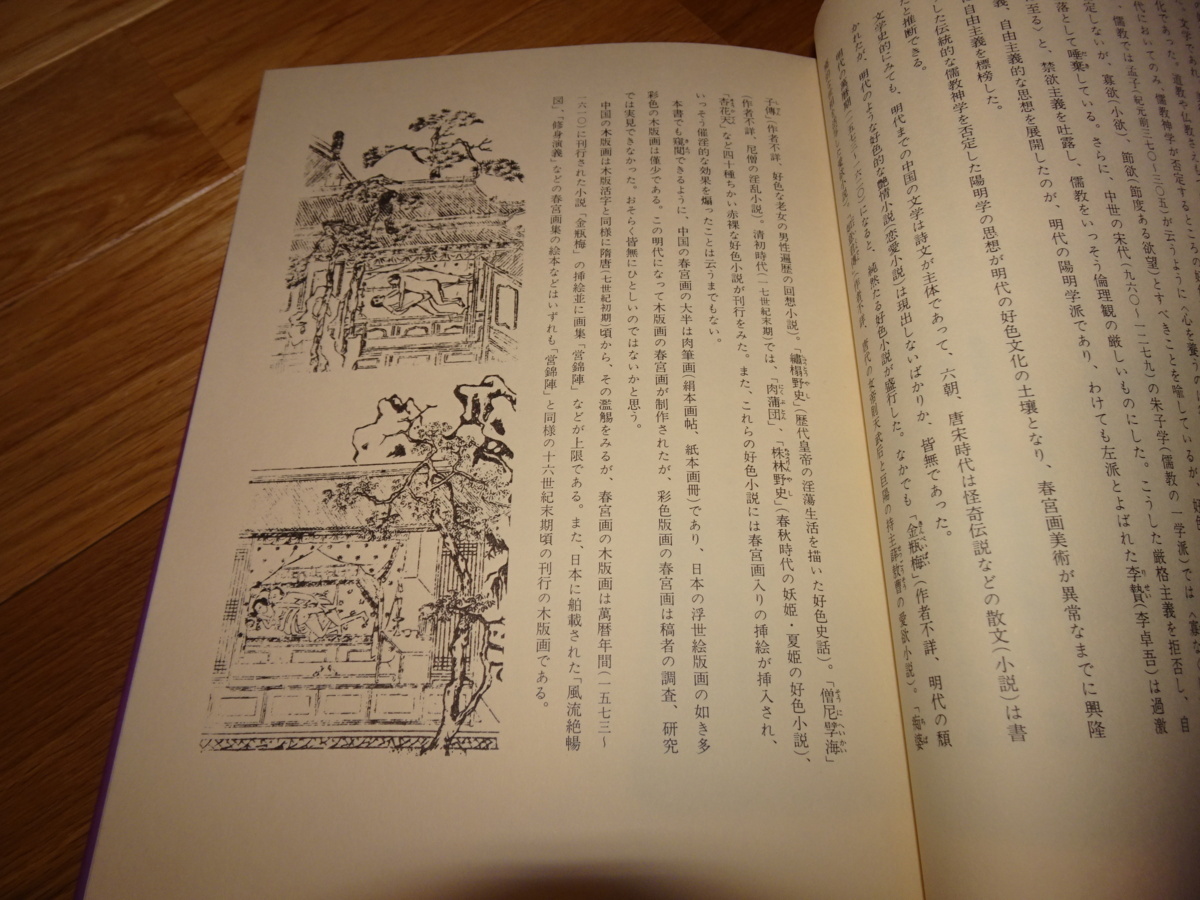 化であった。道教や仏教
代においてのみ、儒教神学が否定するところの
儒教では孟子(紀元前三七〇〜三〇五)が云うように〈心を養うに
定しないが、寡欲(小欲)、節欲(節度ある欲望)とすべきことを喩しているが、
落として唾棄している。さらに、中世の宋代(九六〇〜一二七九)の朱子学(儒教の一学派)では〈寡な
至る〉と、禁欲主義を吐露し、儒教をいっそう倫理観の厳しいものにした。こうした厳格主義を拒否し、自
義、自由主義的な思想を展開したのが、明代の陽明学派であり、わけても左派とよばれた李贄(李卓吾)は過激
に自由主義を標榜した。
した伝統的な儒教神学を否定した陽明学の思想が明代の好色文化の土壌となり、春宮画美術が異常なまでに興隆
たと推断できる。
文学史的にみても、明代までの中国の文学は詩文が主体であって、六朝、唐宋時代は怪奇伝説などの散文(小説)は書
かれたが、明代のような好色的な艶情小説(恋愛小説)は現出しないばかりか、皆無であった。
明代の萬暦期(一五七三〜一六二〇)になると、純然たる好色小説が盛行した。なかでも「金瓶梅」(作者不詳、明代の頽
子傳」(作者不詳、好色な老女の男性遍歴の回想小説)。「繡榻野史」(歴代皇帝の淫蕩生活を描いた好色史話)。「僧尼孼海」
(作者不詳、尼僧の淫乱小説)。清初時代(一七世紀末期)では、「肉蒲団」、「株林野史」(春秋時代の妖姫・夏姫の好色小説)、
「杏花天」など四十種ちかい赤裸な好色小説が刊行をみた。また、これらの好色小説には春宮画入りの挿絵が挿入され、
いっそう催淫的な効果を煽ったことは云うまでもない。
本書でも窺閲できるように、中国の春宮画の大半は肉筆画(絹本画帖、紙本画冊)であり、日本の浮世絵版画の如き多
彩色の木版画は僅少である。この明代になって木版画の春宮画が制作されたが、彩色版画の春宮画は稿者の調査、研究
では実見できなかった。おそらく皆無にひとしいのではないかと思う。
中国の木版画は木版活字と同様に隋唐(七世紀初期)頃から、その濫觴をみるが、春宮画の木版画は萬暦年間(一五七三〜
一六一〇)に刊行された小説「金瓶梅」の挿絵並に画集「営錦陣」などが上限である。また、日本に舶載された「風流絶暢
図」、「修身演義」などの春宮画集の絵本などはいずれも「営錦陣」と同様の十六世紀末期頃の刊行の木版画である。